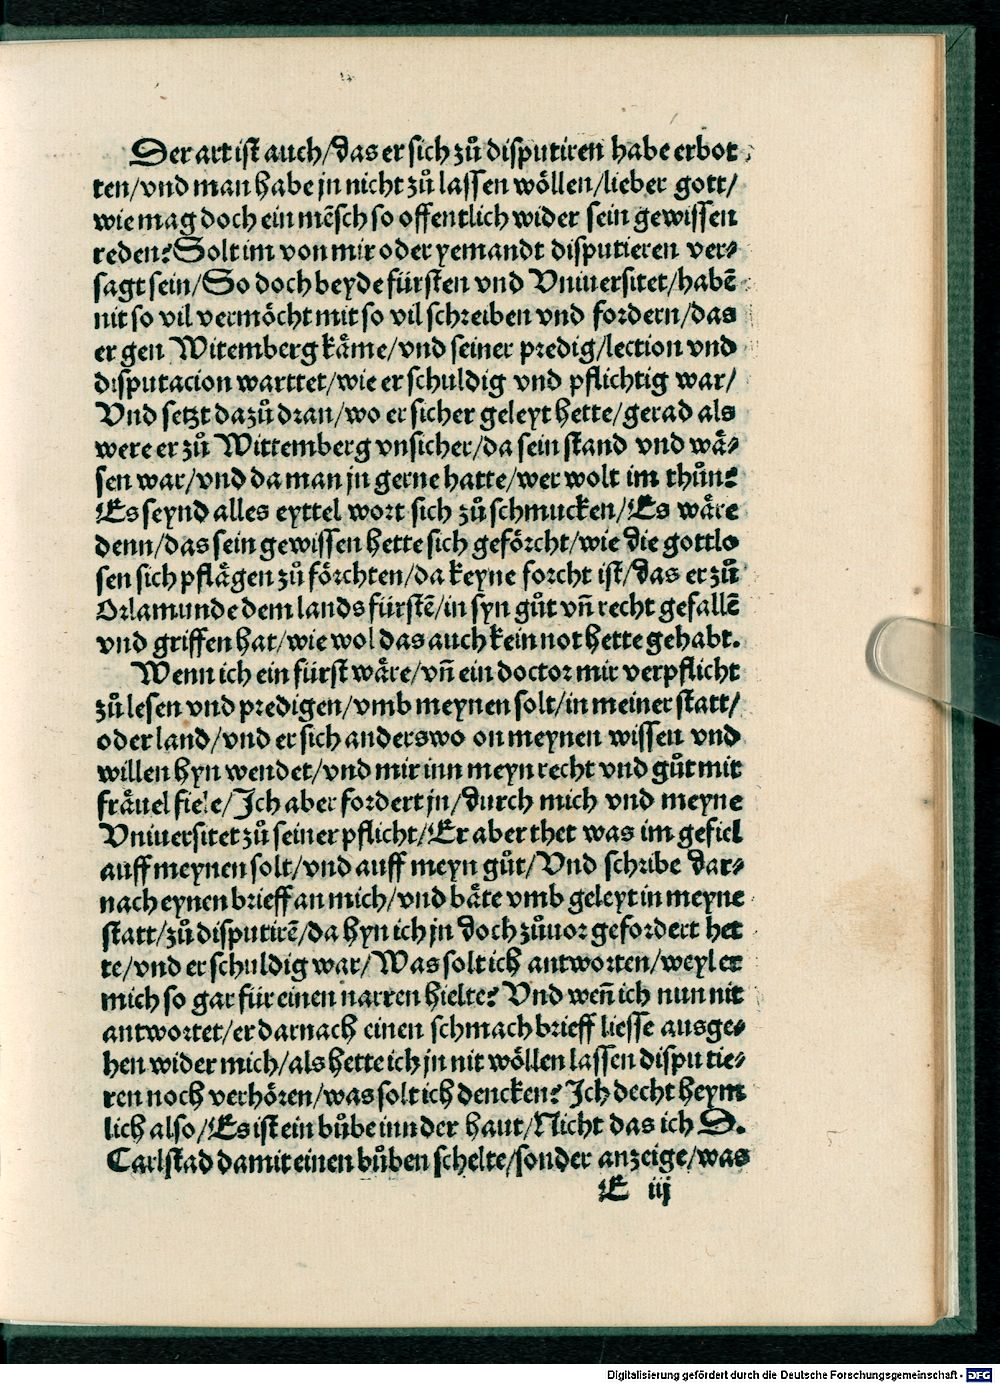 Der art ist auch/das er sich zů disputiren habe erbot
ten/vnd man habe jn nicht zů lassen wöllen/lieber gott/
wie mag doch ein mēsch so offentlich wider sein gewissen
reden? Solt im von mir oder yemandt disputieren ver⸗
sagt sein/So doch beyde fürsten vnd Vniuersitet/habē
nit so vil vermöcht mit so vil schreiben vnd fordern/das
er gen Witemberg käme/vnd seiner predig/lection vnd
disputacion warttet/wie er schuldig vnd pflichtig war/
Vnd setzt dazů dran/wo er sicher geleyt hette/gerad als
were er zů Wittemberg vnsicher/da sein stand vnd wä⸗
sen war/vnd da man jn gerne hatte/wer wolt im thůn?
Es seynd alles eyttel wort sich zů schmucken/Es wäre
denn/das sein gewissen hette sich geförcht/wie die gottlo
sen sich pflägen zů förchten/da keyne forcht ist/das er zů
Orlamunde dem lands fürstē/in syn gůt vn̄ recht gefallē
vnd griffen hat/wie wol das auch kein not hette gehabt.
Wenn ich ein fürst wäre/vn̄ ein doctor mir verpflicht
zů lesen vnd predigen/vmb meynen solt/in meiner statt/
oder land/vnd er sich anderswo on meynen wissen vnd
willen hyn wendet/vnd mir inn meyn recht vnd gůt mit
fräuel fiele/Ich aber fordert jn/durch mich vnd meyne
Vniuersitet zů seiner pflicht/Er aber thet was im gefiel
auff meynen solt/vnd auff meyn gůt/Vnd schribe dar⸗
nach eynen brieff an mich/vnd bäte vmb geleyt in meyne
statt/zů disputirē/da hyn ich jn doch zůuor gefordert het
te/vnd er schuldig war/Was solt ich antworten/weyl er
mich so gar für einen narren hielte? Vnd wen̄ ich nun nit
antwortet/er darnach einen schmach brieff liesse ausge⸗
hen wider mich/als hette ich jn nit wöllen lassen disputie⸗
ren noch verhören/was solt ich dencken? Ich decht heym
lich also/Es ist ein bůbe inn der haut/Nicht das ich D.
Carlstad damit einen bůben schelte/sonder anzeige/was
E iij
Digitalisierung gefördert durch die Deutsche Forschungsgemeinschaft - DFG